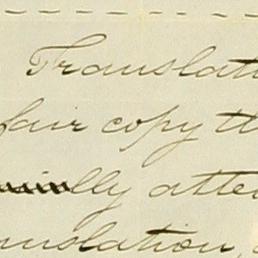 Translati
fair copy th
lly atte
anslation,